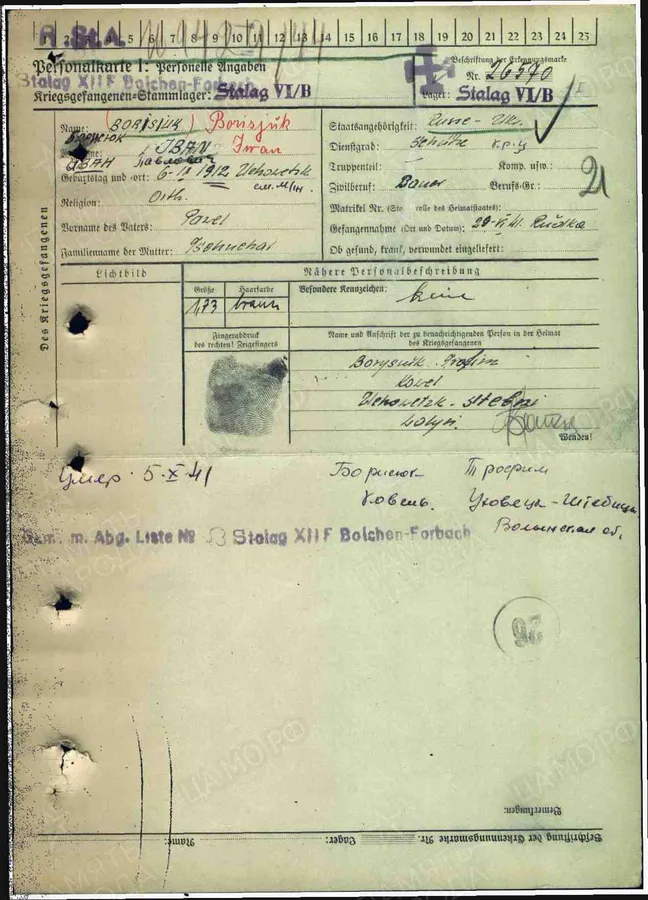 R. St.A.
1 2 3 4 5 6 7 8 9 10 11 12 13 14 15 16 17 18 19 20 21 22 23 24 25
Personalkarte I: Personelle Angaben
Stalag XII F Bolchen-Forbach
Kriegsgefangenen-Stammlager: Stalag VI/B
Beschriftung der Erkennungsmarke
Nr. 26590
Lager: Stalag VI/B
Des Kriegsgefangenen
Name: BORISIUK Borisjuk
Борисюк
IBAN Iwan
Иван Павлович
Geburtstag und -ort: 1912
Religion: Orth.
Vorname des Vaters: Pavel
Familienname der Mutter:
Staatsangehörigkeit: Russe - Ukr.
Dienstgrad: Schütze
Truppenteil: Komp. usw.:
Zivilberuf: Bauer Berufs-Gr.:
21
Matrikel Nr. (Stammrolle des Heimatstaates):
Gefangennahme (Ort und Datum): 29-VI 41. Rudka
Ob gesund, krank, verwundet eingeliefert:
Lichtbild
Nähere Personalbeschreibung
Größe Haarfarbe
1,73 braun
Besondere Kennzeichen: keine
Fingerabdruck
des rechten! Zeigefingers
Name und Anschrift der zu benachrichtigenden Person in der Heimat
des Kriegsgefangenen
Kovel
Wenden!
Умер 5-X-41
Борисюк Трофим
Ковель. Уховецк-Штебица
Волынская об.
Gem. m. Abg. Liste № 53 Stalag XII F Bolchen-Forbach
26
Bemerkungen:
Beschriftung der Erkennungsmarke Nr. Lager: Name:
ЦА МО РФ
ПАМЯТЬ НАРОДА